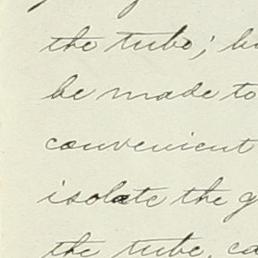 the tube; b
be made to
convenient
isolate the g
the tube, ca